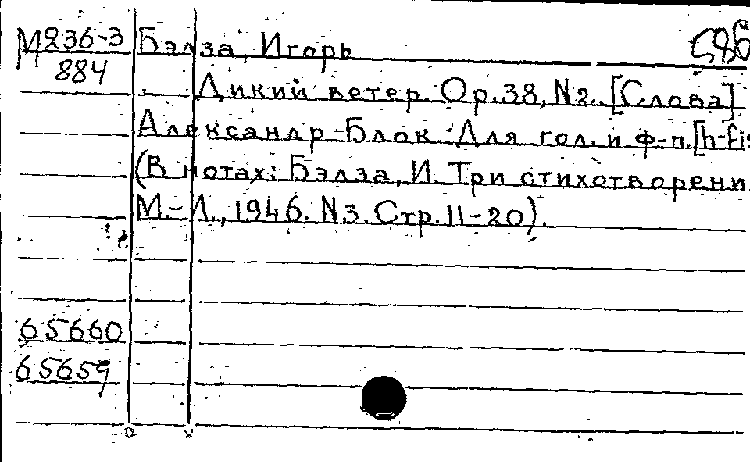 М236-3 Бэлза, Игорь 586
884 Дикий ветер. Ор.38, N2. [Слова]
Александр Блок. Для гол. и ф-п. [h-fis
(В нотах: Бэлза, И. Три стихотворени
М.-Л., 1946. N3. Стр. 11-20).
65660
65659